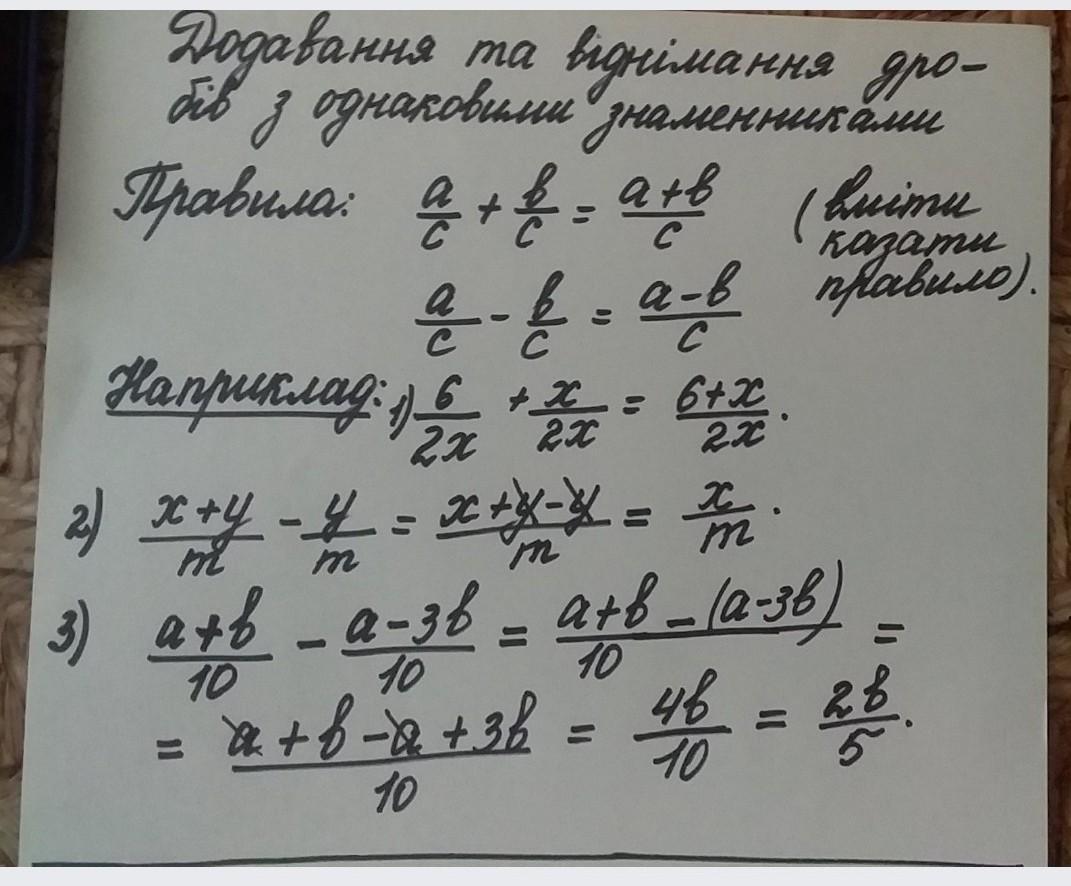 Додавання та віднімання дро-
бів з однаковими знаменниками
Правила: a/c + b/c = a+b/c (вміти
казати
правило).
a/c - b/c = a-b/c
Наприклад: 1) 6/2x + x/2x = 6+x/2x.
2) x+y/m - y/m = x+y-y/m = x/m.
3) a+b/10 - a-3b/10 = a+b-(a-3b)/10 =
= a+b-a+3b/10 = 4b/10 = 2b/5.